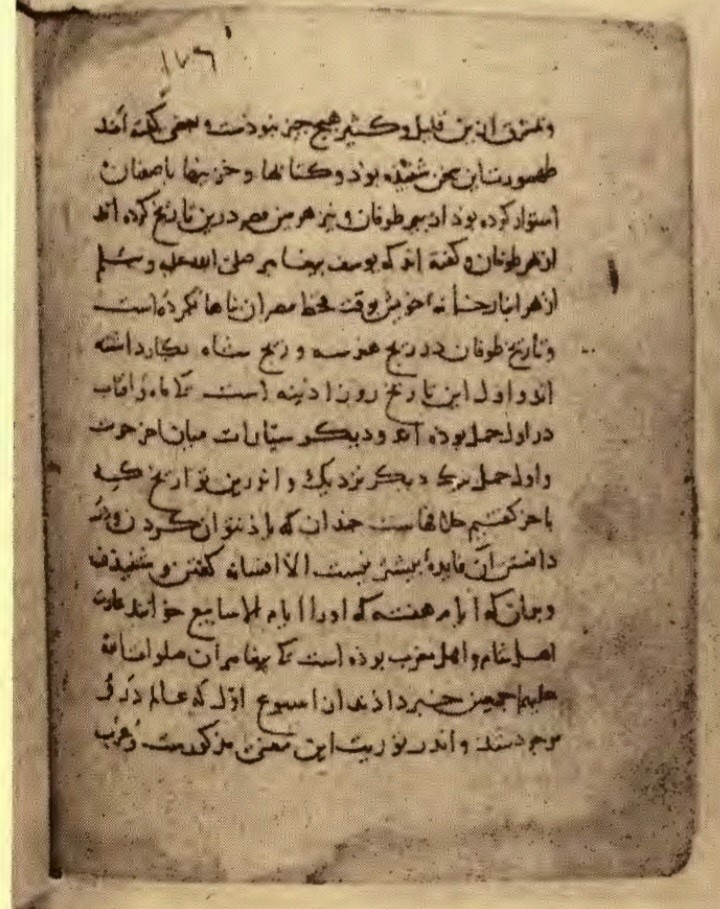 ١٧٦
و بمشرق ازین قلیل و کثیر هیچ چیز نبوذست و بعضی گفته‌اند
طهمورث این سخن شنیذه بوذ و کتابها و خزینها باصفهان
استوار کرده بوذ از بیم طوفان و نیز هرمس مصر درین تاریخ کرده‌اند
از بهر طوفان و گفته‌اند که یوسف پیغامبر صلی الله علیه و سلم
از بهر انبار خویش وقت قحط مصر ان بناها بکرده است
و تاریخ طوفان در زیج سه و زیج شاه بکار داشته
اند و اول این تاریخ روز اذینه است کی ماه و افتاب
در اول حمل بوذه اند و دیگر سیّارات میان اخر حوت
و اول حمل بیک دیگر نزدیک و اندرین تواریخ کی
یاد کردیم خلافهاست چندان که یاد نتوان کردن و در
دانستن آن فایدهٔ بیشتر نیست الا افسانه گفتن و شنیذن
و بدان که ایام هفته که او را ایام الاسابیع خوانند عادت
اهل شام و اهل مغرب بوذه است کی پیغامبران صلوات الله
علیهم اجمعین خبر داذند از اسبوع اوّل که عالم در و
موجود شد و اندر توریت این معنی مذکورست و عرب